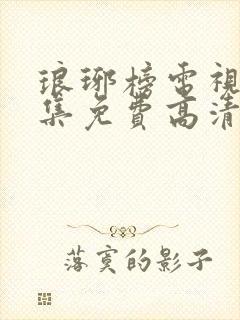 琅琊榜電視
集免費高清
落寞的影子